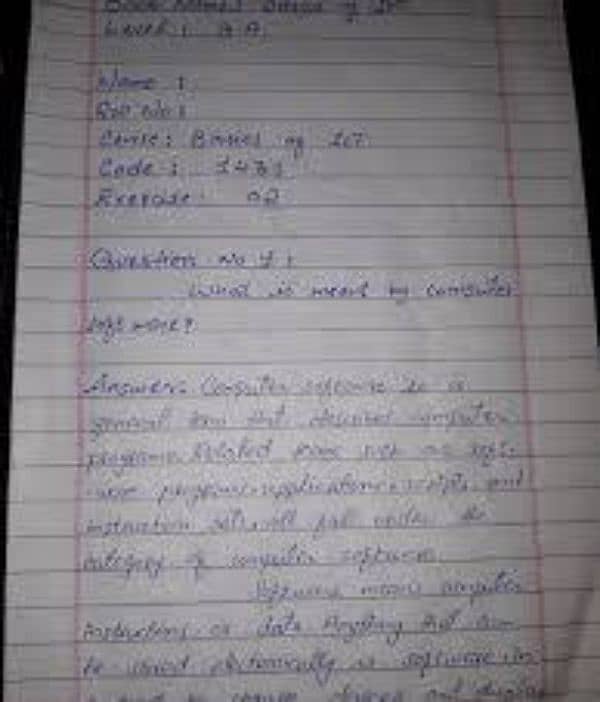 Book Name: Basics of ICT
Level: B.A
Name:
Roll No:
Course: Basics of ICT
Code: 1431
Exercise: 02
Question No 1:
What is meant by computer
software?
Answer: Computer software is a
general term that describes computer
programs. Related terms such as soft-
ware programs, applications, scripts, and
instruction sets all fall under the
category of computer software.
Software means computer
instructions or data. Anything that can
be stored electronically is software